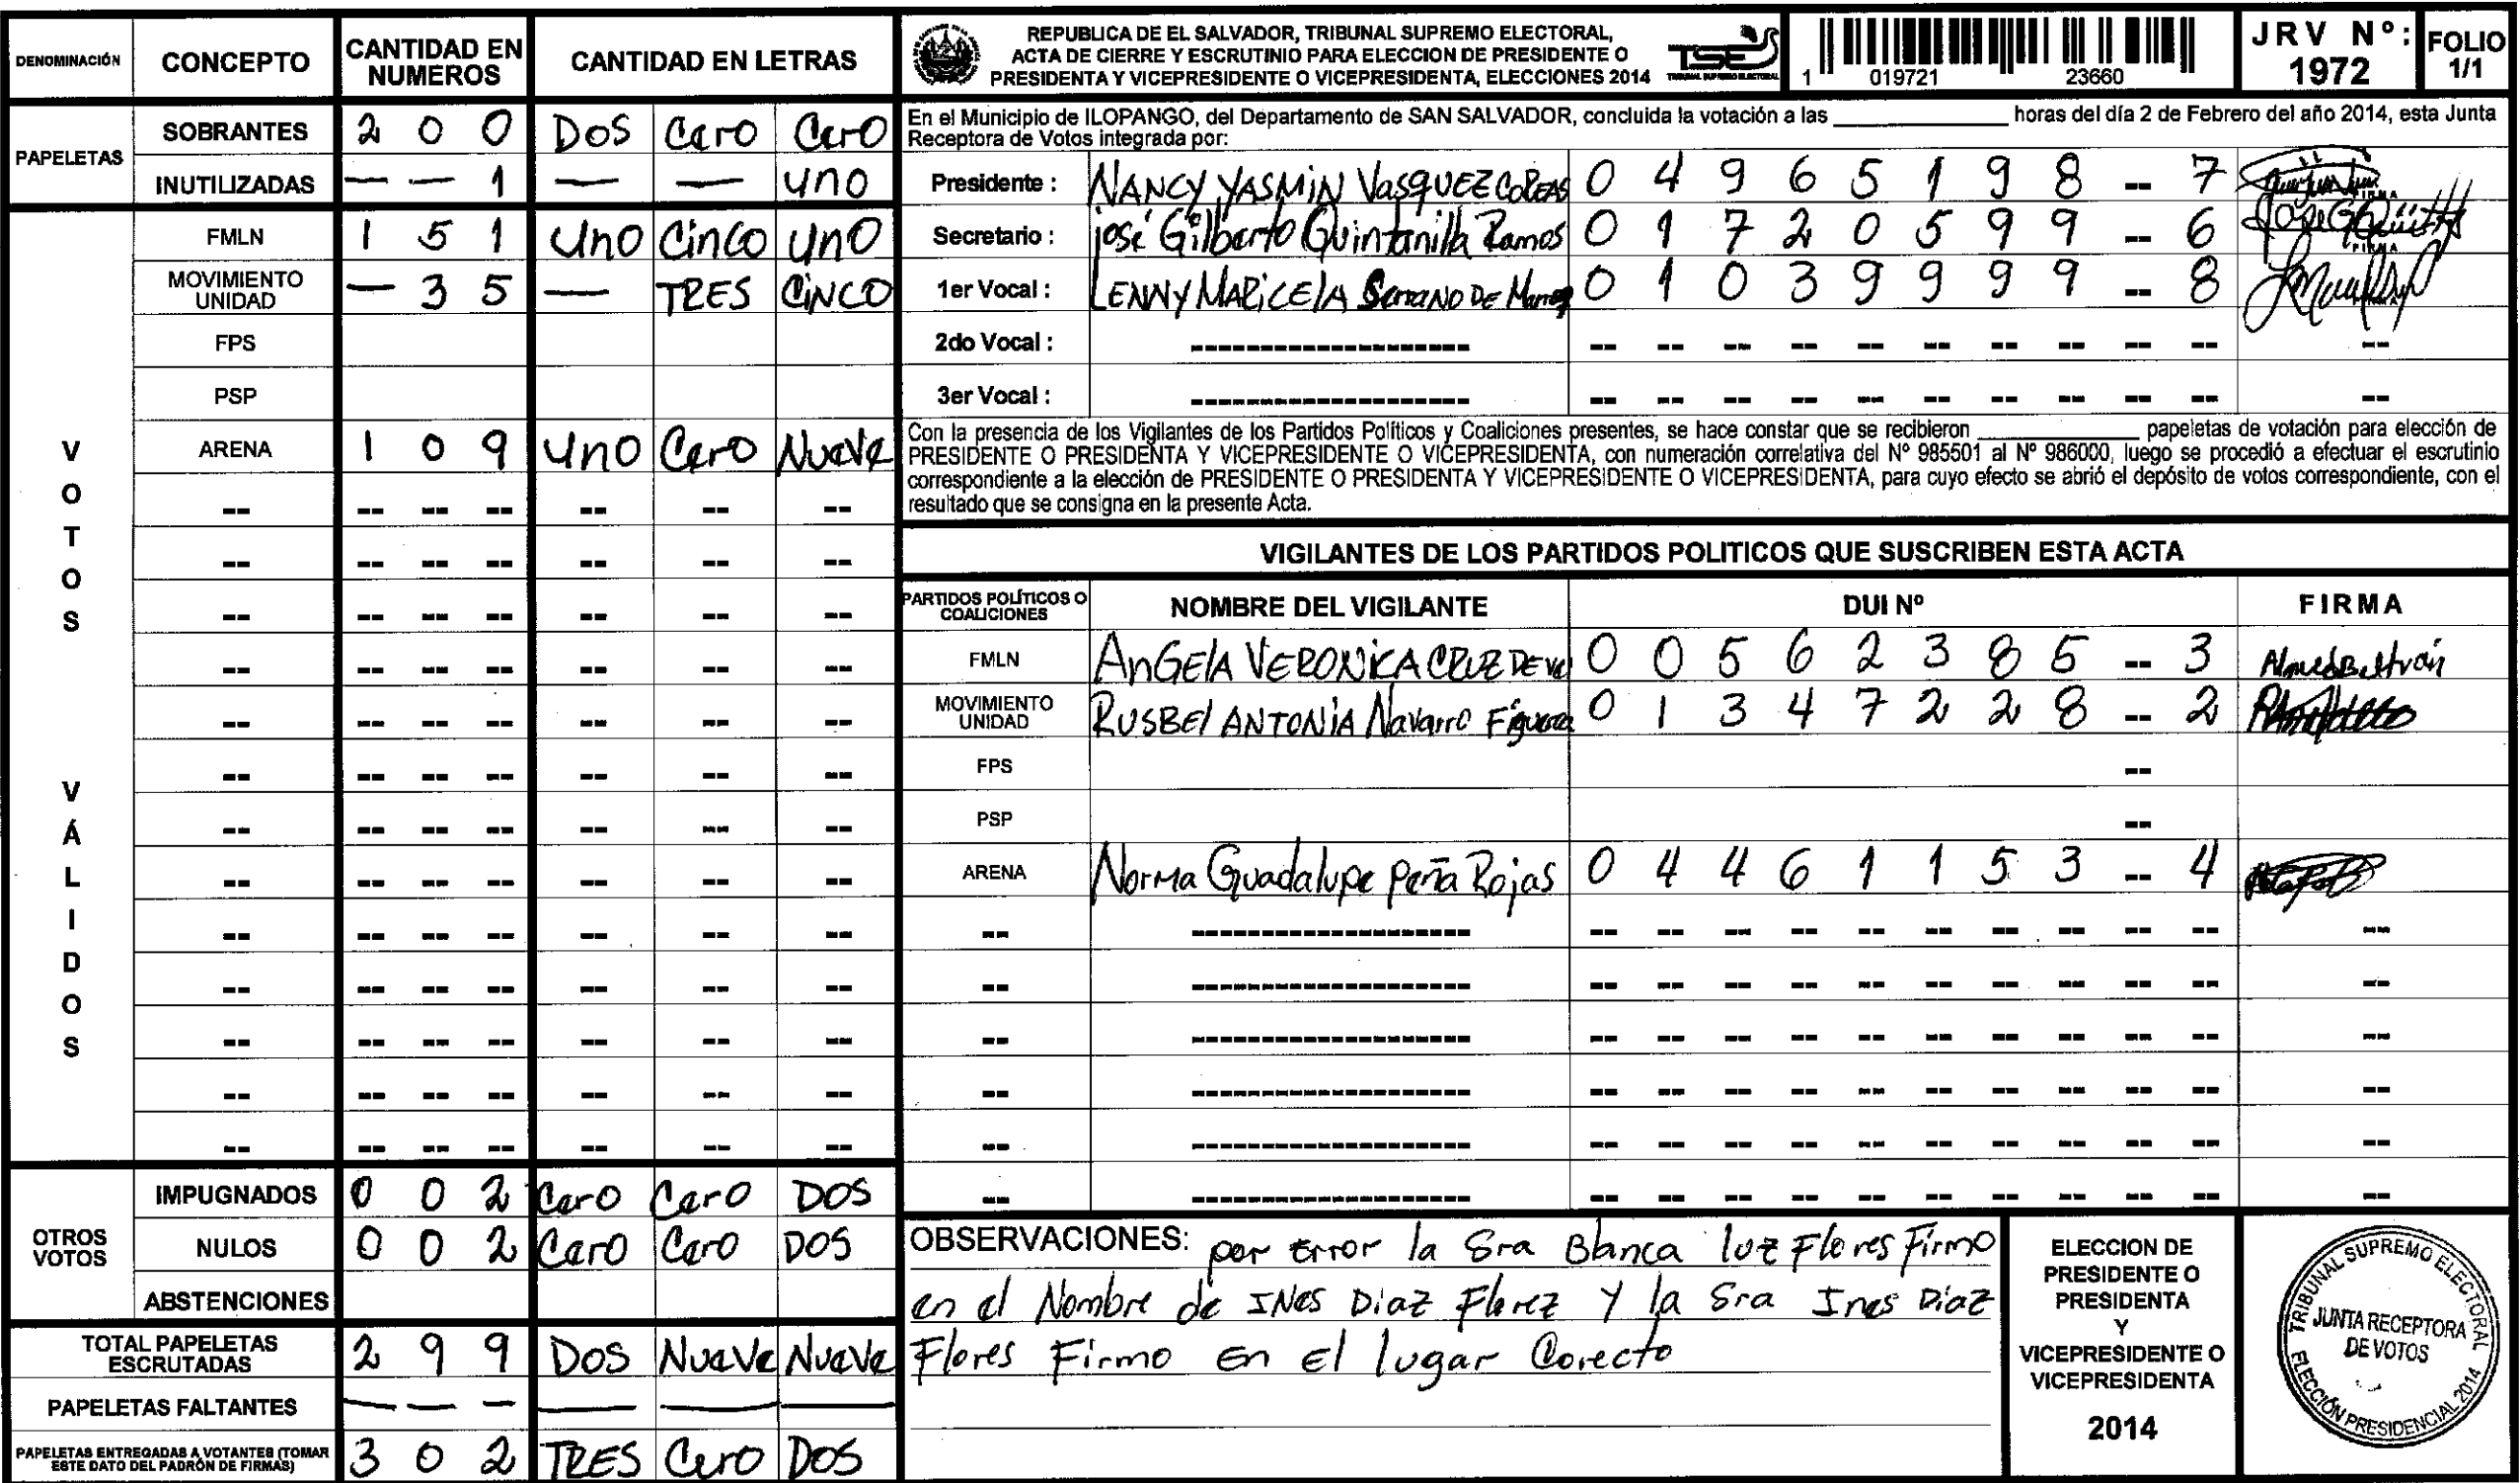 DENOMINACIÓN CONCEPTO CANTIDAD EN NUMEROS CANTIDAD EN LETRAS
PAPELETAS
SOBRANTES 2 0 0 DOS Cero Cero
INUTILIZADAS — — 1 — — uno
VOTOS VÁLIDOS
FMLN 1 5 1 Uno Cinco uno
MOVIMIENTO UNIDAD — 3 5 — TRES CiNCO
FPS
PSP
ARENA 1 0 9 uno Cero Nueve
OTROS VOTOS
IMPUGNADOS 0 0 2 Cero Cero DOS
NULOS 0 0 2 Cero Cero DOS
ABSTENCIONES
TOTAL PAPELETAS ESCRUTADAS 2 9 9 DOS Nueve Nueve
PAPELETAS FALTANTES — — — — — —
PAPELETAS ENTREGADAS A VOTANTES (TOMAR ESTE DATO DEL PADRÓN DE FIRMAS) 3 0 2 TRES Cero DOS
REPUBLICA DE EL SALVADOR, TRIBUNAL SUPREMO ELECTORAL,
ACTA DE CIERRE Y ESCRUTINIO PARA ELECCION DE PRESIDENTE O
PRESIDENTA Y VICEPRESIDENTE O VICEPRESIDENTA, ELECCIONES 2014
TSE
TRIBUNAL SUPREMO ELECTORAL
1 019721 23660
JRV Nº: 1972
FOLIO 1/1
En el Municipio de ILOPANGO, del Departamento de SAN SALVADOR, concluida la votación a las ____________ horas del día 2 de Febrero del año 2014, esta Junta
Receptora de Votos integrada por:
Presidente : NANCY YASMiN VasQUEZ COREAS 0 4 9 6 5 1 9 8 -- 7
FIRMA
Secretario : josé Gilberto Quintanilla Ramos 0 1 7 2 0 5 9 9 -- 6
FIRMA
1er Vocal : LENNY MARiCElA SerranO DE 0 1 0 3 9 9 9 9 -- 8
2do Vocal :
3er Vocal :
Con la presencia de los Vigilantes de los Partidos Políticos y Coaliciones presentes, se hace constar que se recibieron ____________ papeletas de votación para elección de
PRESIDENTE O PRESIDENTA Y VICEPRESIDENTE O VICEPRESIDENTA, con numeración correlativa del Nº 985501 al Nº 986000, luego se procedió a efectuar el escrutinio
correspondiente a la elección de PRESIDENTE O PRESIDENTA Y VICEPRESIDENTE O VICEPRESIDENTA, para cuyo efecto se abrió el depósito de votos correspondiente, con el
resultado que se consigna en la presente Acta.
VIGILANTES DE LOS PARTIDOS POLITICOS QUE SUSCRIBEN ESTA ACTA
PARTIDOS POLÍTICOS O COALICIONES NOMBRE DEL VIGILANTE DUI Nº FIRMA
FMLN AnGElA VERONiCA CRUZ DE 0 0 5 6 2 3 8 5 -- 3
MOVIMIENTO UNIDAD RUSBEl ANTONiA Navarro Figueroa 0 1 3 4 7 2 2 8 -- 2
FPS --
PSP --
ARENA Norma Guadalupe Peña Rojas 0 4 4 6 1 1 5 3 -- 4
OBSERVACIONES: por Error la Sra Blanca luz Flores Firmo
en el Nombre de INes Diaz Florez Y la Sra Ines Diaz
Flores Firmo En El lugar Corecto
ELECCION DE
PRESIDENTE O
PRESIDENTA
Y
VICEPRESIDENTE O
VICEPRESIDENTA
2014
TRIBUNAL SUPREMO ELECTORAL
JUNTA RECEPTORA
DE VOTOS
ELECCIÓN PRESIDENCIAL 2014